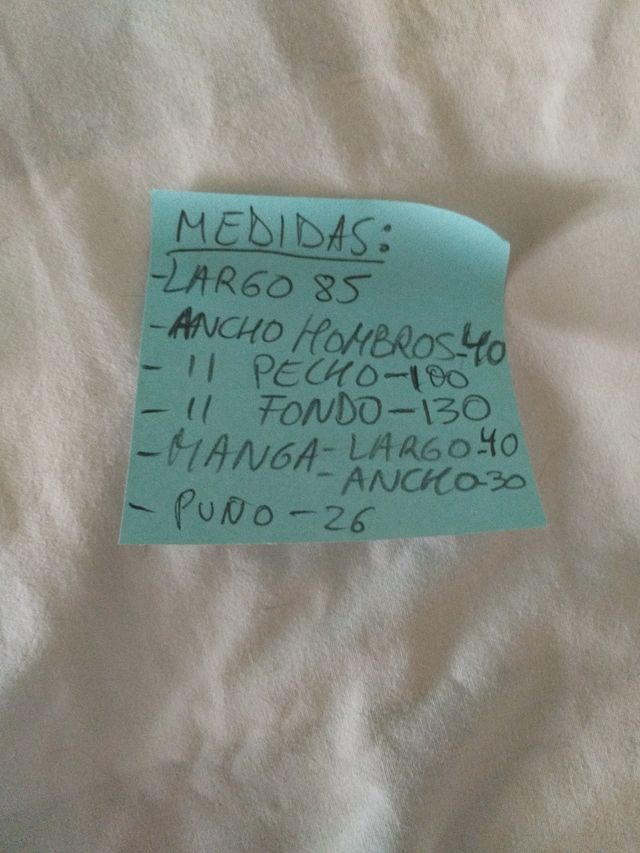 MEDIDAS:
-LARGO 85
-ANCHO HOMBROS-40
- 11 PECHO-100
- 11 FONDO-130
-MANGA-LARGO-40
-ANCHO-30
- PUÑO-26